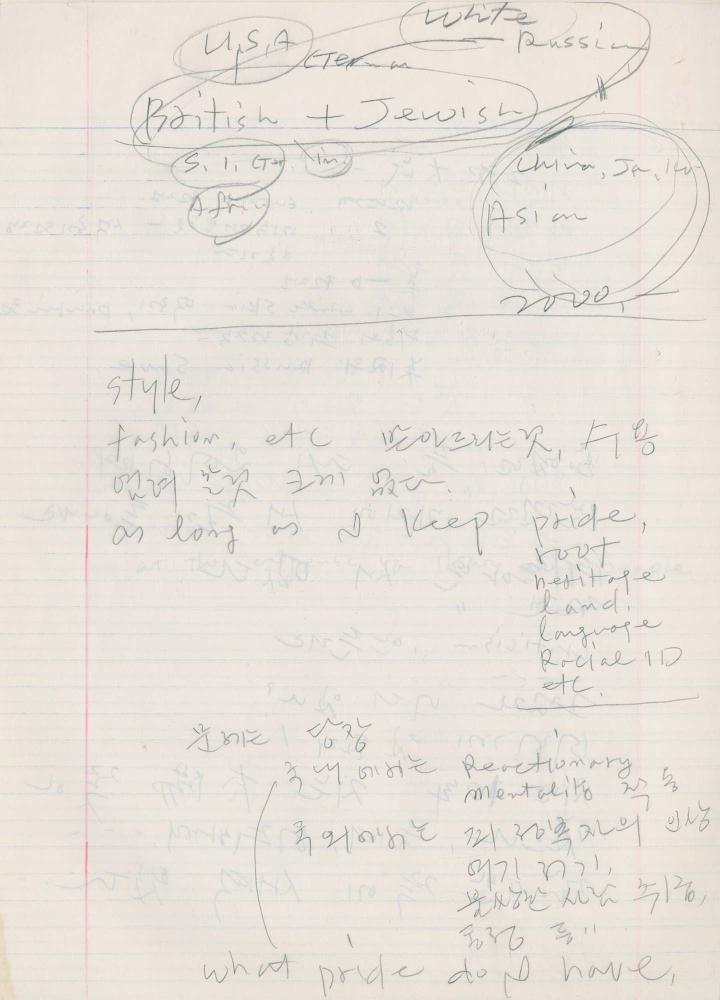 White
U.S.A Russian
German
British + Jewish
S. I. Ger
Africa
China, Ja, Ko
Asian
2000,-
style,
fashion, etc 받아드리는것, 수용
염려 할것 크게 없다.
as long as I keep pride,
root
heritage
land.
language
Racial ID
etc.
문제는 당장
국내에서는 Reactionary
mentality 작동
국외에서는 피정복자의 인상
여기 저기,
불쌍한 사람 취급,
동정 등"
what pride do I have,